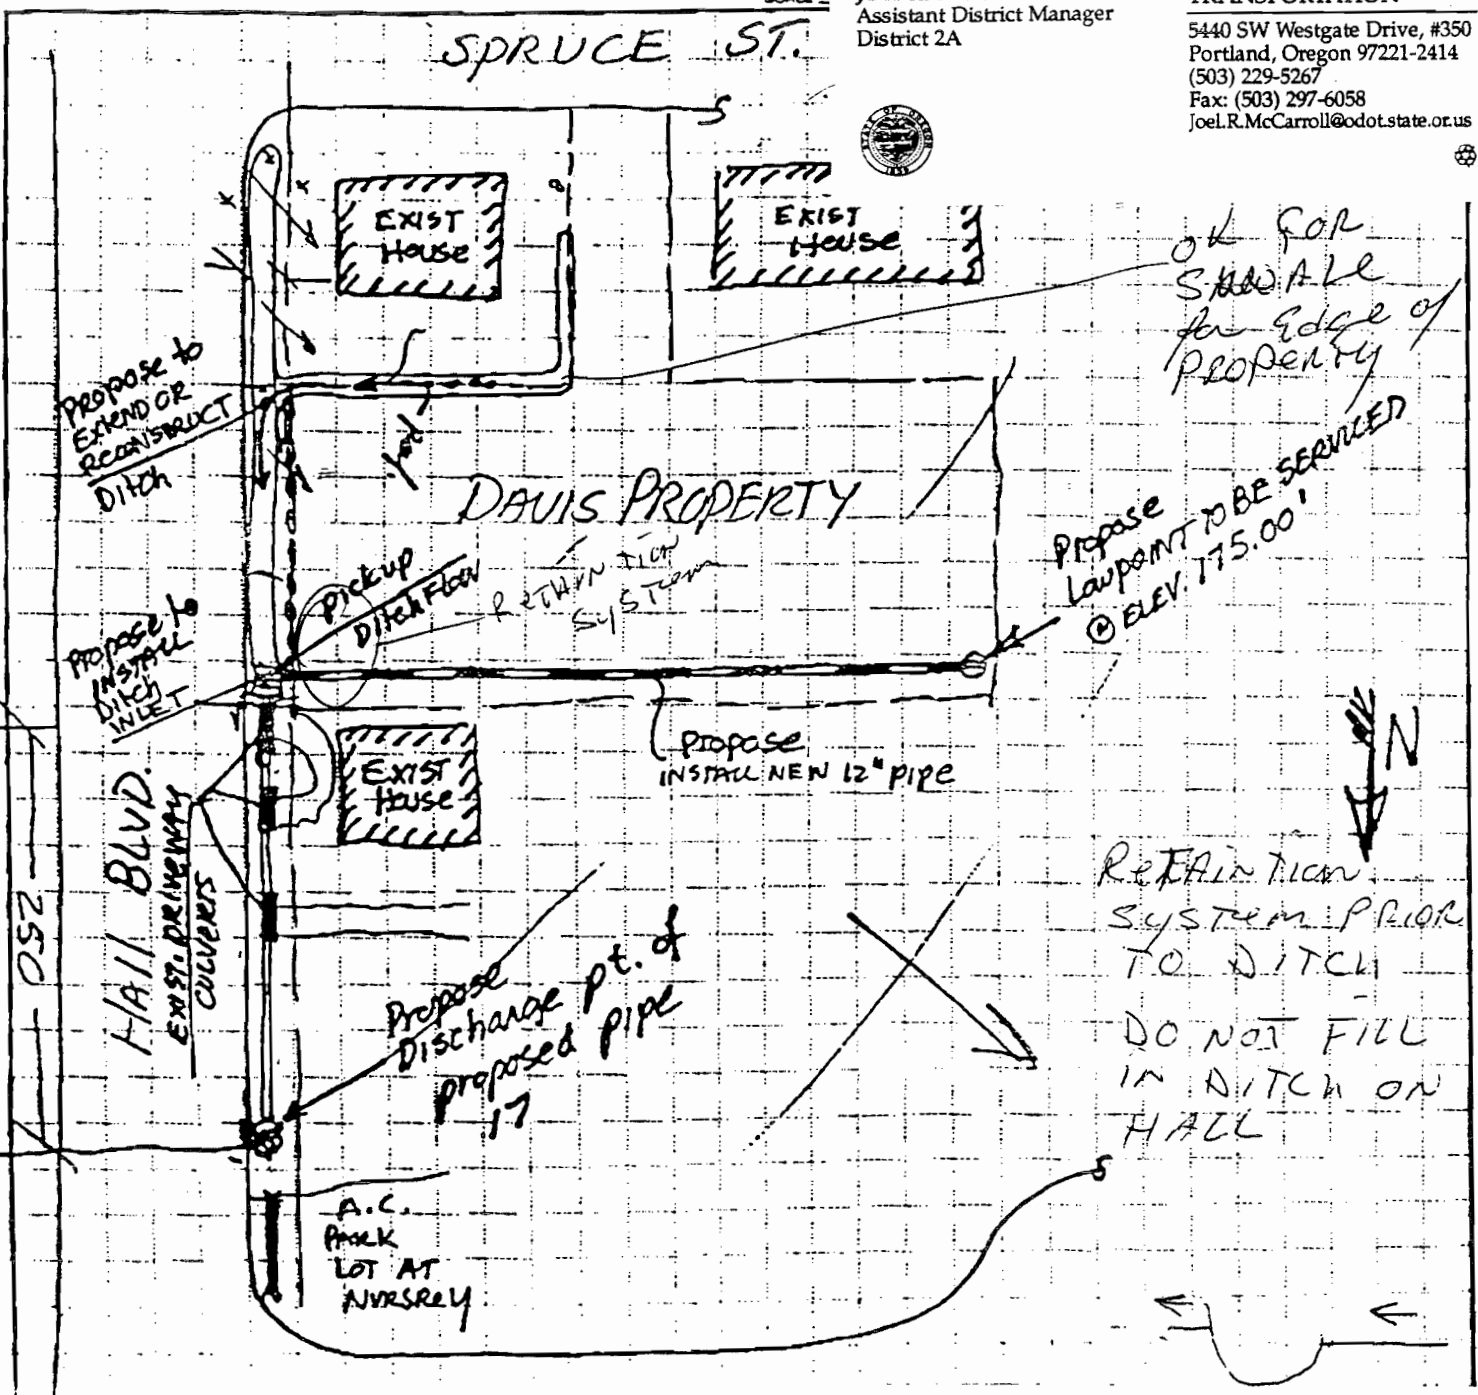 SPRUCE ST.
Assistant District Manager
District 2A
TRANSPORTATION
5440 SW Westgate Drive, #350
Portland, Oregon 97221-2414
(503) 229-5267
Fax: (503) 297-6058
Joel.R.McCarroll@odot.state.or.us
STATE OF OREGON
1859
EXIST
House
EXIST
House
OK FOR
SWALE
for Edge of
PROPERTY
Propose to
EXTEND OR
RECONSTRUCT
Ditch
DAVIS PROPERTY
RETAINTION
SYSTEM
Pickup
Ditch Flow
Propose
Lowpoint TO BE SERVICED
@ ELEV. 175.00'
Propose to
INSTALL
Ditch
INLET
EXIST
House
Propose
INSTALL NEW 12" pipe
N
HAll BLVD.
EXIST. DRIVEWAY
CULVERTS
250
Propose
Discharge pt. of
proposed pipe
17
RETAINTION
SYSTEM PRIOR
TO DITCH
DO NOT FILL
IN DITCH ON
HALL
A.C.
PARK
LOT AT
NURSREY